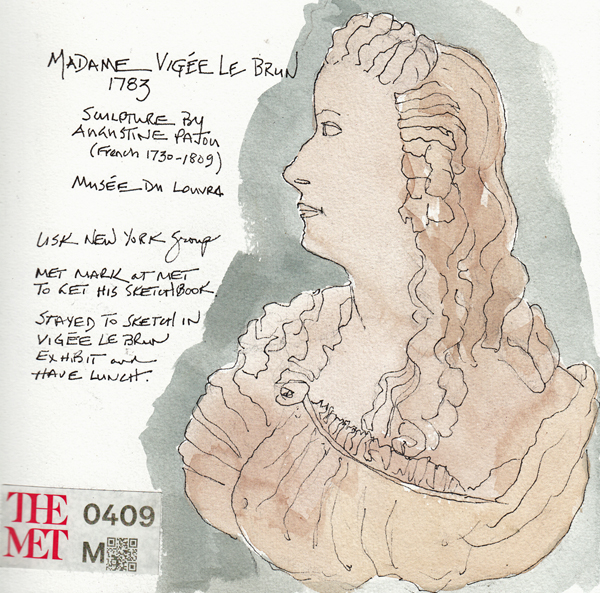 MADAME VIGÉE LE BRUN
1783
SCULPTURE BY
AUGUSTINE PAJOU
(French 1730-1809)
MUSÉE DU LOUVRA
USK NEW YORK group
MET MARK at MET
TO GET HIS SKETCHBOOK.
STAYED TO SKETCH IN
VIGÉE LE BRUN
EXHIBIT and
HAVE LUNCH.
THE
MET
0409
M